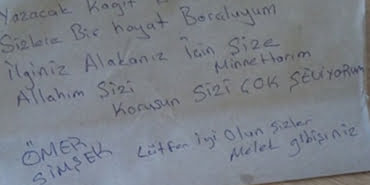 Yazacak Kağıt
Sizlere Bir hayat Borçluyum
İlginiz Alakanız İçin Size
Minnettarım
Allahım Sizi
Korusun Sizi ÇOK SEViYORUM
ÖMER
ŞİMŞEK
Lütfen İyi Olun Sizler
Melek gibisiniz